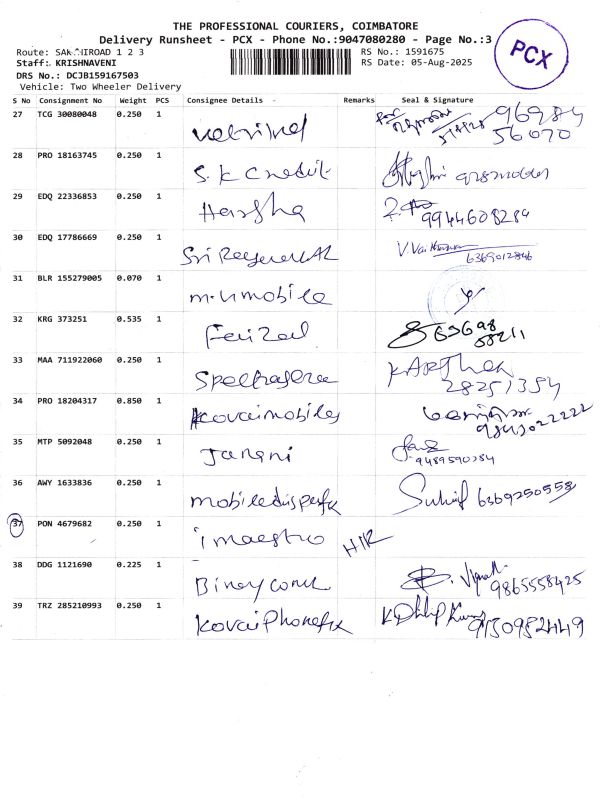 THE PROFESSIONAL COURIERS, COIMBATORE
Delivery Runsheet - PCX - Phone No.:9047080280 - Page No.:3
PCX
Route: SAK HIROAD 1 2 3
RS No.: 1591675
Staff: KRISHNAVENI
RS Date: 05-Aug-2025
DRS No.: DCJB159167503
Vehicle: Two Wheeler Delivery
S No Consignment No Weight PCS Consignee Details Remarks Seal & Signature
27 TCG 30080048 0.250 1 96984
56070
28 PRO 18163745 0.250 1 S.K Credit
29 EDQ 22336853 0.250 1 Harsha 9944608284
30 EDQ 17786669 0.250 1 Sri 6369012846
31 BLR 155279005 0.070 1 m.u mobile
32 KRG 373251 0.535 1 Faizal 63698
58211
33 MAA 711922060 0.250 1 KARTHEK
28251354
34 PRO 18204317 0.850 1 Kovaimobiles
9843022222
35 MTP 5092048 0.250 1 Janani
9489590284
36 AWY 1633836 0.250 1 6369250558
37 PON 4679682 0.250 1 imaestro
38 DDG 1121690 0.225 1 9865558425
39 TRZ 285210993 0.250 1 KovaiPhonefix 9150982449